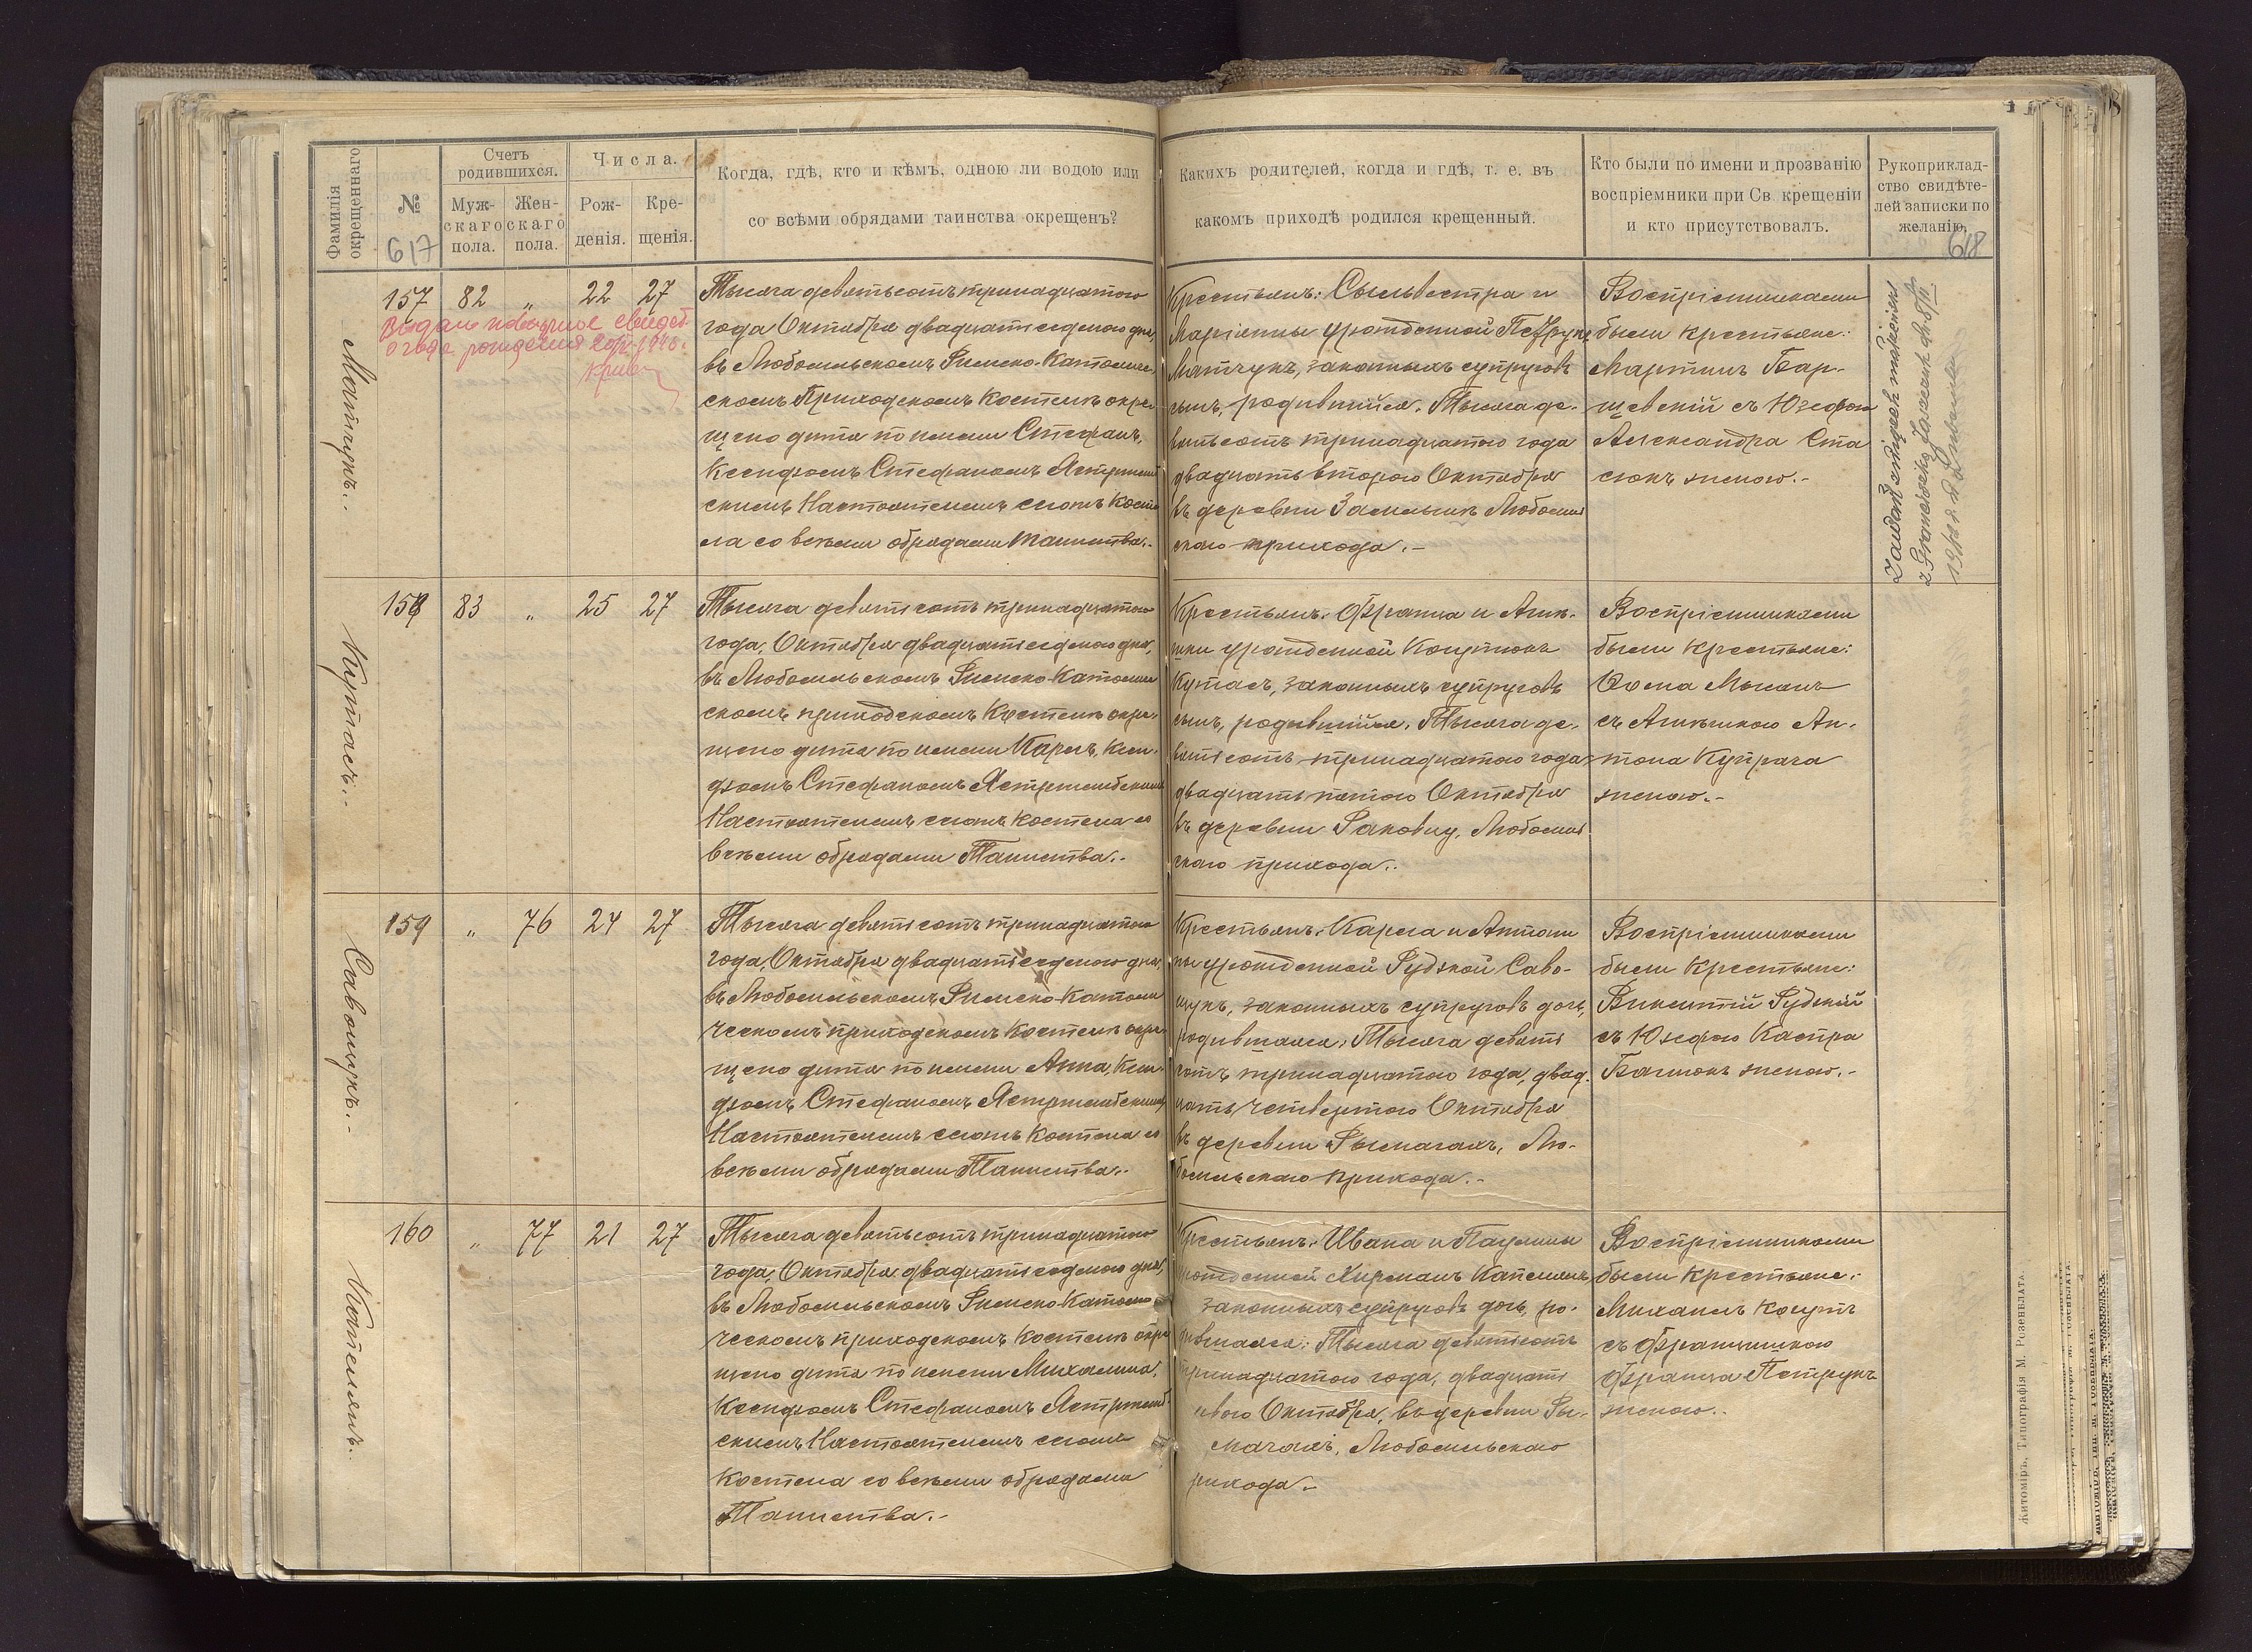 Фамилія окрещеннаго
№
617
Счетъ родившихся.
Муж-
скаго
пола.
Жен-
скаго
пола.
Числа.
Рож-
денія.
Кре-
щенія.
Когда, гдѣ, кто и кѣмъ, одною ли водою или
со всѣми обрядами таинства окрещенъ?
Какихъ родителей, когда и гдѣ, т. е. въ
какомъ приходѣ родился крещенный.
Кто были по имени и прозванію
воспріемники при Св крещеніи
и кто присутствовалъ.
Рукоприклад-
ство свидѣте-
лей записки по
желанію.
618
157 82 „ 22 27
Выдано повторное свидет.
о рождения
Матчукъ.
Тысяча девятьсотъ тринадцатого
года Октября двадцать седьмого дня,
въ Любомльскомъ Римско-Католиче-
скомъ Приходскомъ Костелѣ окре-
щено дитя по имени Стефанъ,
Ксендзомъ Стефаномъ Ястржемб
скимъ Настоятелемъ сего Косте
ла со всѣми обрядами таинства.-
Крестьянъ: Сыльвестра и
Маріанны урожденной Петрукъ
Матчукъ, законныхъ супруговъ
сынъ, родившійся, Тысяча де-
вятьсотъ тринадцатого года
двадцать второго Октября
въ деревни Замлынѣ Любомль
скаго прихода.-
Воспріемниками
были крестьяне:
Мартинъ Бар-
щевскій съ Юзефою
Александра Ста
сюкъ женою.-
z Franciszką
158 83 „ 25 27
Кутасъ.
Тысяча девятьсотъ тринадцатого
года, Октября двадцать седьмого дня,
въ Любомльскомъ Римско-Католиче
скомъ приходскомъ Костелѣ окре-
щено дитя по имени Кароль, Ксен-
дзомъ Стефаномъ Ястржембскимъ
Настоятелемъ сего Костела со
всѣми обрядами Таинства.-
Крестьянъ: Франца и Агнѣ-
шки урожденной
Кутасъ, законныхъ супруговъ
сынъ, родившійся, Тысяча де-
вятьсотъ тринадцатого года
двадцать пятого Октября
въ деревни Раковцу, Любомль
скаго прихода.-
Воспріемниками
были крестьяне:
съ Агнѣшкою Ан-
тона Купрача
женою.-
159 „ 76 24 27
Савощукъ.
Тысяча девятьсотъ тринадцатого
года, Октября двадцать седьмого дня,
въ Любомльскомъ Римско-Католи
ческомъ приходскомъ Костелѣ окре-
щено дитя по имени Анна, Ксен-
дзомъ Стефаномъ Ястржембскимъ
Настоятелемъ сего Костела со
всѣми обрядами Таинства.-
Крестьянъ: Кароля и Антони
ны урожденной Рудзкой Саво-
щукъ, законныхъ супруговъ дочь,
родившаяся, Тысяча девять
сотъ тринадцатого года, двад-
цать четвертого Октября
въ деревни Рымачахъ, Лю-
бомльскаго прихода.-
Воспріемниками
были крестьяне:
Викентій Рудзкій
съ Юзефою Каспра
женою.-
160 „ 77 21 27
Капелянъ.
Тысяча девятьсотъ тринадцатого
года, Октября двадцать седьмого дня,
въ Любомльскомъ Римско-Католи
ческомъ приходскомъ Костелѣ окре
щено дитя по имени Михалина,
Ксендзомъ Стефаномъ Ястржемб
скимъ Настоятелемъ сего
Костела со всѣми обрядами
Таинства.-
Крестьянъ: Ивана и Паулины
урожденной Капелянъ,
законныхъ супруговъ дочь, ро-
дившаяся: Тысяча девятьсотъ
тринадцатого года, двадцать
первого Октября, въ деревни Ры-
мачахъ, Любомльскаго
прихода.-
Воспріемниками
были крестьяне:
Михаилъ
съ Францишкою
Франца Петрукъ
женою.-
Житоміръ, Типографія М. Розенблата.